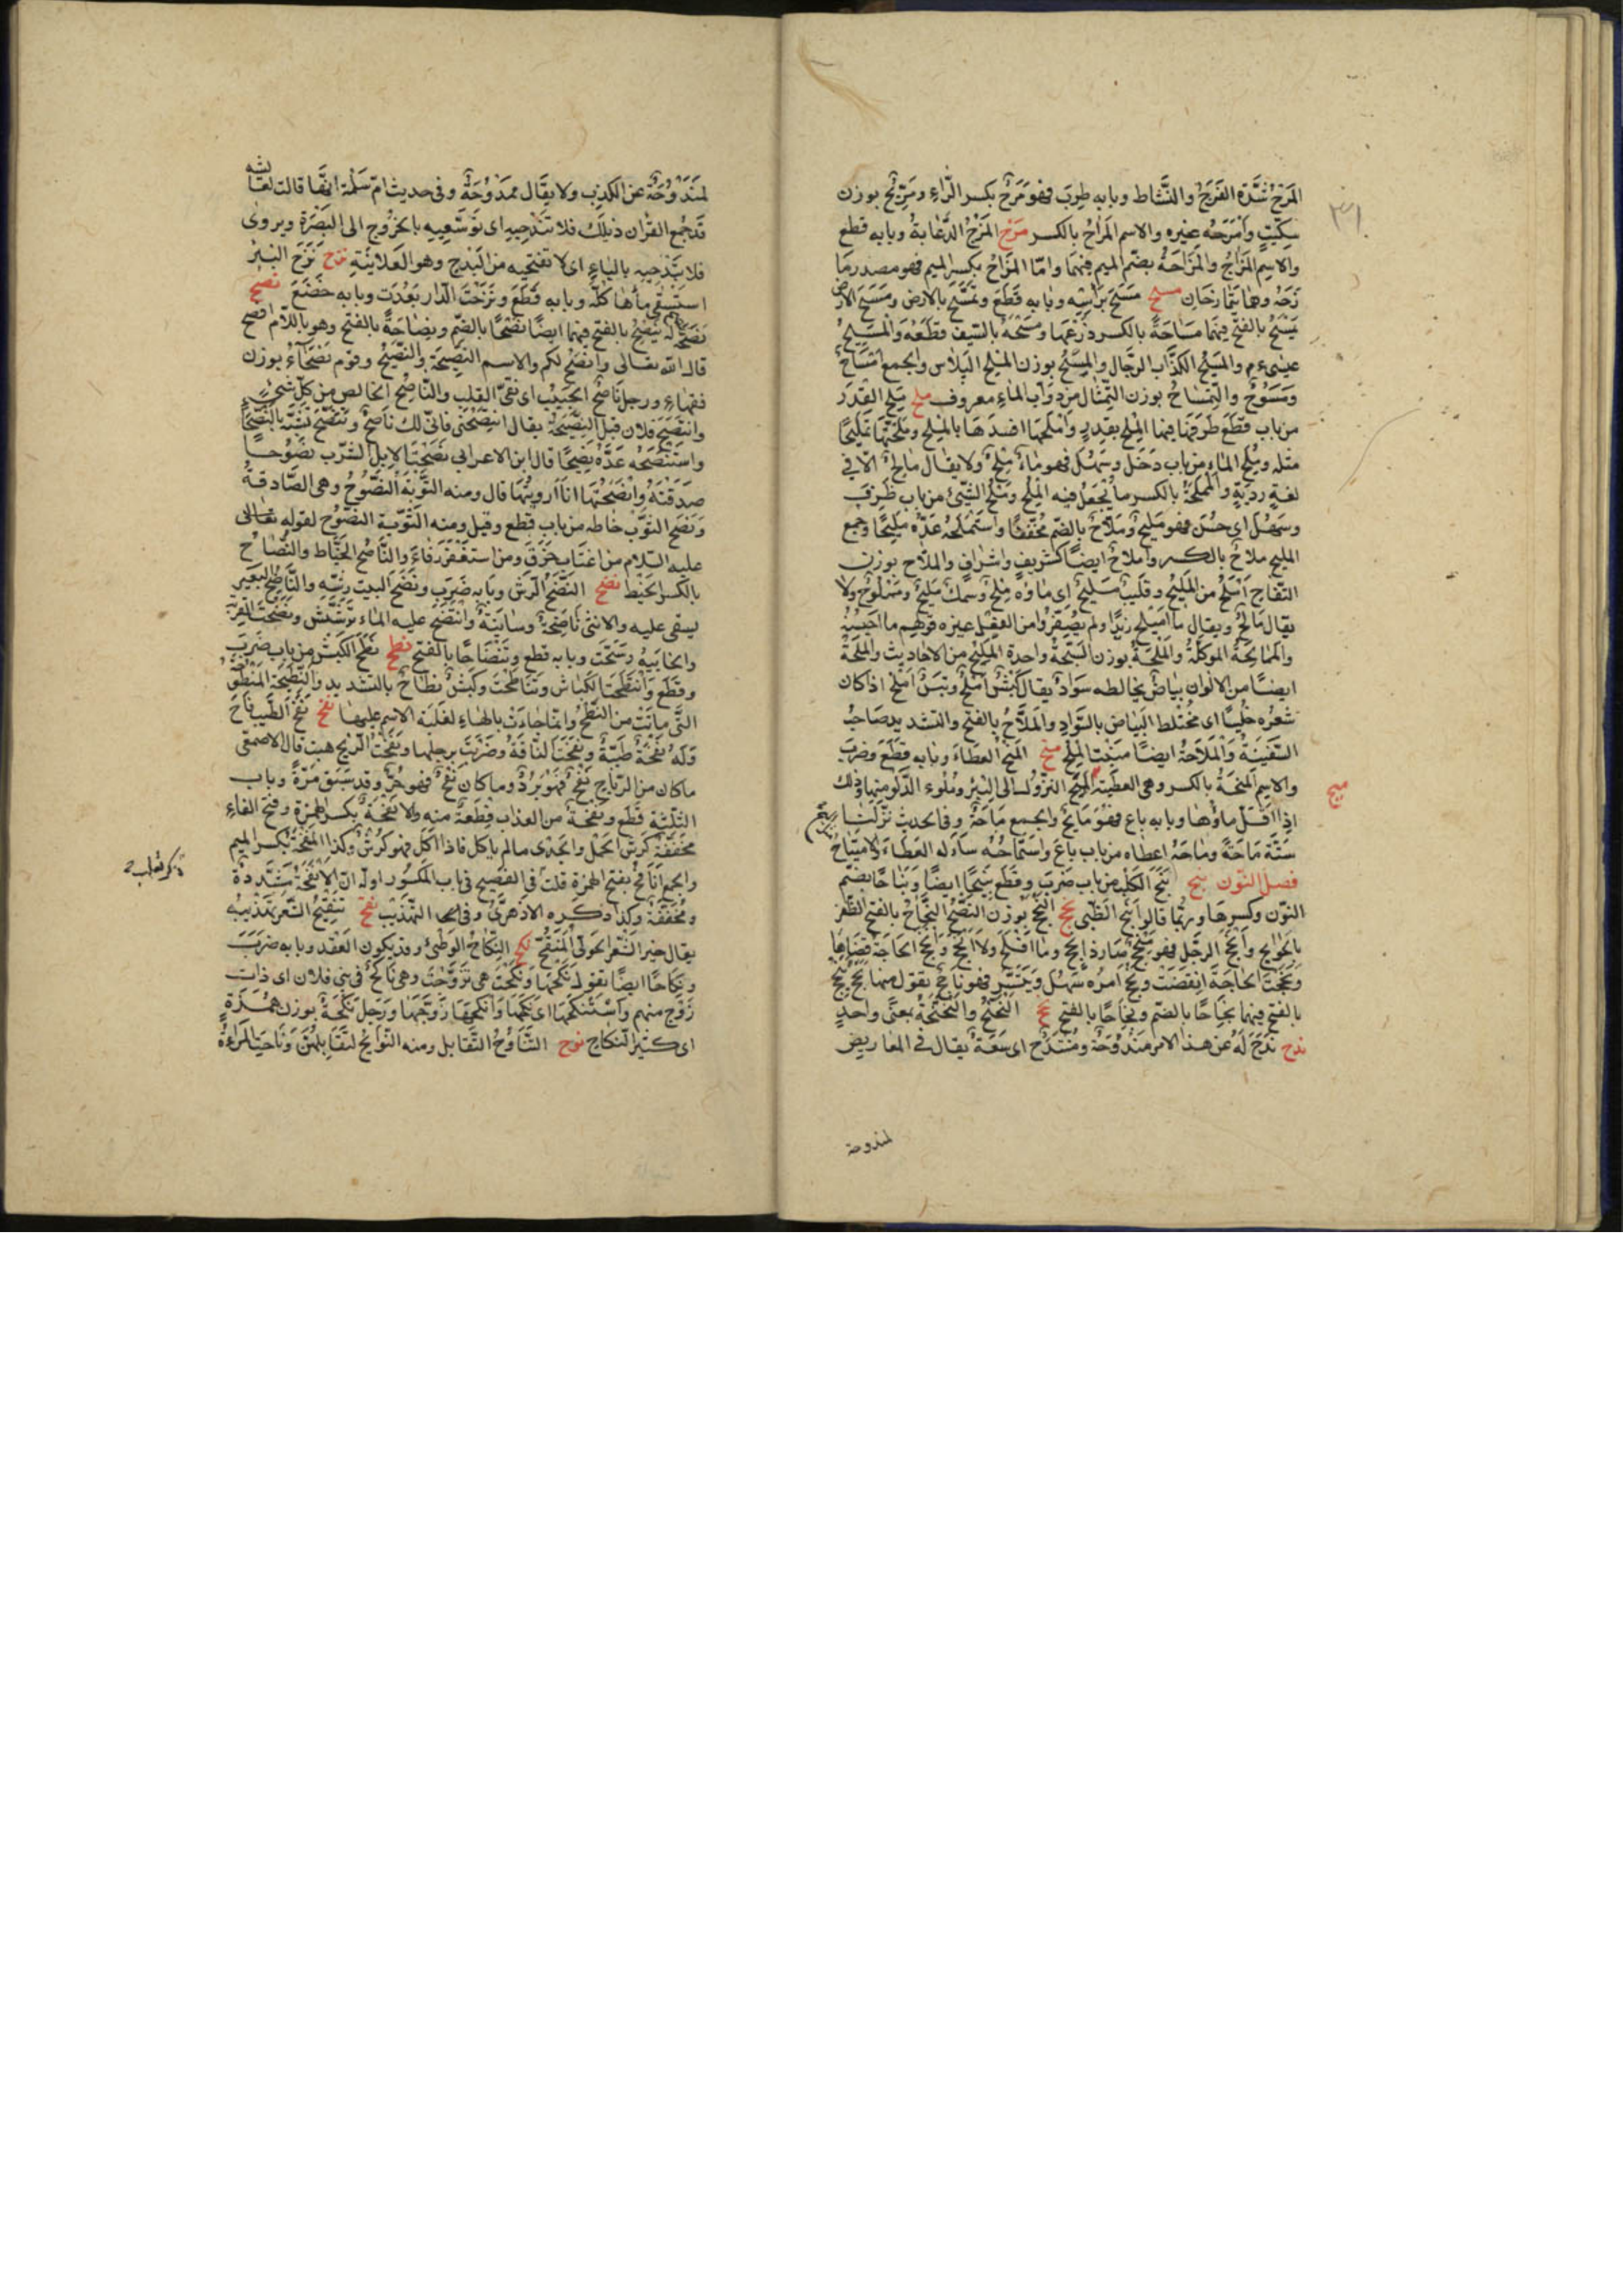 المَرَحُ شدّة الفَرَحِ والنَّشاط وبابه طِربَ فهو مَرِحٌ بكسر الرّاءِ ومِرِّيحٌ بوزن
سِكِّيتٍ وأمْرَحَهُ غيره والاسم المِرَاحُ بالكسر مزح المَزْحُ الدُّعَابةُ وبابه قطع
والاسم المُزَاحُ والمُزَاحَةُ بضمّ الميم فيهما وامّا المِزَاحُ بكسر الميم فهو مصدر مَا
زَحَهُ وهما يَتَمَازَحَانِ مسح مَسَحَ برَأسِه وبابه قَطَعَ وتمَسَّحَ بالارض ومَسَحَ الارض
يَمْسَحُ بالفتح فيهما مِسَاحَةً بالكسر ذَرَعَهَا ومَسَحَهُ بالسّيف قطعَهُ والمَسِيحُ
عيسىء م والمسيح الكذّاب الدجّال والمِسْحُ بوزن المِلح البِلاس والجمع امْسَاحٌ
ومُسُوحٌ والتِمْسَاحُ بوزن التِّمْثَال من دَوَابّ الماءِ معروف ملح مَلَحَ القِدْرَ
من باب قطَعَ طَرَحَ فيها المِلْح بقَدرٍ وأمْلَحَهَا افسدَهَا بالمِلْحِ ومَلَّحَهَا تَمْلِيحًا
مثله ومَلُحَ الماء من باب دَخَل وسَهُل فهو ماءٌ مِلْحٌ ولا يقال مالحٌ الّا في
لغةٍ رديّةٍ والمَمْلَحَةُ بالكسر ما يُجْعَلُ فيه المِلْح ومَلُحَ الشّيئ من باب ظرفَ
وسَهُلَ اى حَسُنَ فهو مَليحٌ ومُلَاحٌ بالضم مُخفّفًا واستَمْلَحَهُ عَدَّهُ مَليحًا وجمع
المليح مِلاحٌ بالكسر واملاحٌ ايضًا كشريفٍ واشرافٍ والملّاح بوزن
التفّاح أمْلَحُ من المَلِيح وقليبٌ مَلِيحٌ اى ماؤه مِلحٌ وسمكٌ مَليحٌ ومَمْلُوحٌ ولا
يقال مَالحٌ ويقال ما أُمَيْلِحَ زيدًا ولم يُصَغِّرُوا من الفعل غيره وقولهم ما أُحَيْسِنَهُ
والمُمَالَحَةُ المؤاكلَةُ والمُلْحَةُ بوزن السُبْحَةُ واحدة المُلَحِ من الاحاديث والمُلْحَةُ
ايضًا من الالوان بياضٌ يخالطه سَوادٌ يقال كَبْشٌ أمْلَحُ وتيسٌ أمْلَحُ اذا كان
شعرُه خَلِيسًا اى مُختلط البَياض بالسّوادِ والمَلَّاحُ بالفتح والتشديد صاحبُ
السّفينةِ والمَلَّاحَةُ ايضًا مَنبِت المِلْحِ منح المَنحُ العطاءَ وبابه قطع وضربَ
والاسم المِنحَةُ بالكسر وهى العطيّة المَيْحُ النزُولُ الى البِئرِ ومَلْء الدَّلو منها وذلك
ميح
اذا قلّ ماؤُها وبابه باع فهو مَائِحٌ والجمع مَاحَةٌ وفى الحديث نزَلنا
سِتَّة مَاحَةً ومَاحَهُ اعطاه من باب بَاعَ واستَمَاحَهُ سأله العطاءَ والامتِيَاحُ
فصل النّون نبح نَبَحَ الكَلبُ من باب ضَرَبَ وقَطع نَبِيحًا ايضًا ونُبَاحًا بضمّ
النّون وكسرها وربّما قالوا نبَحَ الظّبى نجح النُّجْحُ بوزن النُّصْحُ والنَّجَاحُ بالفتح الظّفر
بالحوائج وأنجَحَ الرجل فهو مُنْجِحٌ صارذا نُجْحٍ وما افْلَحَ ولا أنجَحَ وأنجَحَ الحاجَة قضاها
ونَجَحَت الحاجة انقضَتْ ونَجَحَ امرُه سَهُلَ وتَيَسّرَ فهو ناجحٌ يقول منها نَجَحَ يَنْجَحُ
بالفتح فيهما نُجَاحًا بالضم ونَجَاحًا بالفتح نح النَّحْنَحُ والنَّحْنَحَةُ بمعنًى واحدٍ
ندح نَدَحَ لَهُ عن هذا الامر مَنْدُوحَةٌ ومُنْتَدَحٌ اى سَعَةٌ يقال فى المعاريض
لمندوحة
لمَندُوحَةٌ عن الكذب ولا يقال ممدُوحَةٌ وفى حديث امّ سَلمَة انّها قالت لعَائشه
قد جمع القرآن ذيلَكِ فلا تَنْدَحِيهِ اى تُوسِّعِيهِ بالخروج الى البَصْرَة ويروى
فلا تَبْدَحِيهِ بالباءِ اى لا تفتحِيه من البَدْحِ وهو العَلانيَةِ نزح نَزَحَ البئرَ
استَسْقى ماءها كلّه وبابه قَطَعَ ونَزَحَتِ الدّار بَعُدَت وبابه خَضَعَ نصح
نَصَحَهُ وله يَنصَحُ بالفتح فيهما ايضًا نُصْحًا بالضّم ونصَاحَةً بالفتح وهو باللّام افصح
قال الله تعالى وأنصَحُ لكم والاسم النّصِيحَة والنّصِيحُ وقوم نُصَحَآءُ بوزن
فقهاء ورجل ناصحُ الجَيْبِ اى نقىّ القلب والنّاصِحُ الخالص من كلّ شىءٍ
وانتَصَحَ فلان قبِلَ النّصِيحَةَ يقال انتصِحْنى فانّى لك ناصحٌ وتَنَصَّحَ تشبّه بالنُّصَحَاء
واستنصَحَهُ عَدَّهُ نصِيحًا قال ابن الاعرابى نصَحَتِ الابل الشّرب نُصُوحًا
صَدَقَتْهُ وأنصَحْتُهَا انَا أرويتُهَا قال ومنه التّوبَةُ النّصُوحُ وهى الصَّادقةُ
ونَصَحَ الثوبَ خاطه من باب قطع وقيل ومنه التّوبة النّصُوح لقوله
عليه السّلام من اغتابَ خَرَقَ ومن استغفرَ رَفاءَ والنّاصحُ الخيّاط والنِّصَاحُ
بالكسر الخَيْط نضح النّضْحُ الرّشّ وبابه ضَرَبَ ونَضَحَ البيت رشّه والنّاضِحُ البَعِير
يسقى عليه والانثى ناضِحَةٌ وسانيَةٌ وانتَضَحَ عليه الماء ترَشَّش ونضَحَت القِربَة
والخابيَةُ رشَحَت وبابه قطع وتَنْضَاحًا بالفتح نطح نَطَحَ الكَبشُ من باب ضرَبَ
وقَطَع وانتطَحَتِ الكِبَاش وتَنَاطَحَتْ وكَبشٌ نطّاحٌ بالتشديد والنَّطِيحَة المَنْطُوحَةُ
التى ماتَتْ من النّطحِ وانّما جاءَت بالهاءِ لغَلَبَة الاسم عليها نفح نَفَحَ الطّيب فَاحَ
ولهُ نَفْحَةٌ طيّبةٌ ونَفَحَتِ النّاقةُ ضَرَبَت برجلها ونَفَحَتِ الرّيح هبّت قال الاصمعى
ماكان من الرّياح نَفْحٌ فهو بَرْدٌ وما كان لَفْحٌ فهو حَرٌّ وقد سَبَق مَرّةً وباب
الثلثة قَطَعَ ونَفْحَةٌ من العذاب قِطعَةٌ منه والإنفَحَةُ بكسر الهمزة وفتح الفاءِ
مخفّفةً كَرِشُ الحمَل والجَدْى مالم ياكل فاذا اكل فهو كَرِشٌ وكذا المِنْفَحَةُ بكسر الميم
والجمع انَافِحُ بفتح الهمزة قلت فى الفصيح فى باب المكسُور اوله انّ الإنْفَحَةُ مشدّدةٌ
ومُخفّفةٌ وكذا ذكره الازهرىّ فى التهذيب نقح تَنْقِيحُ الشّعْر تهذيبُه
يقال خير الشّعر الحَولىّ المُنَقَّح نكح النِّكَاحُ الوَطْئُ وقد يكون العَقد وبابه ضرَبَ
ونِكاحًا ايضًا تقول نَكَحَهَا ونَكَحَتْ هى تزوَّجَتْ وهى نَاكِحٌ فى بنى فلان اى ذات
زَوْجٍ منهم واسْتَنكَحَهَا اى نكَحَهَا وأنكَحَهَا زوَّجَهَا ورَجلٌ نُكَحَةٌ بوزن هُمَزَةٍ
اى كثير النّكاح نوح التَّنَاوُحُ التّقابل ومنه النّوَائِحُ لتقَابُلهنّ ونَاحَتِ المرأةُ